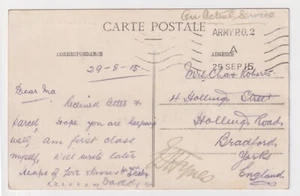 On Active Service
CARTE POSTALE
ARMY P.O. 2
A
29 SEP 15
CORRESPONDANCE
ADRESSE
29-8-15
Dear Ma
Received Letter &
Parcel. Hope you are keeping
well, am first class
myself, will write later
Heaps of Love
Daddy
Mrs Chas Roberts
4 Hollings Street
Hollings Road
Bradford
Yorks
England